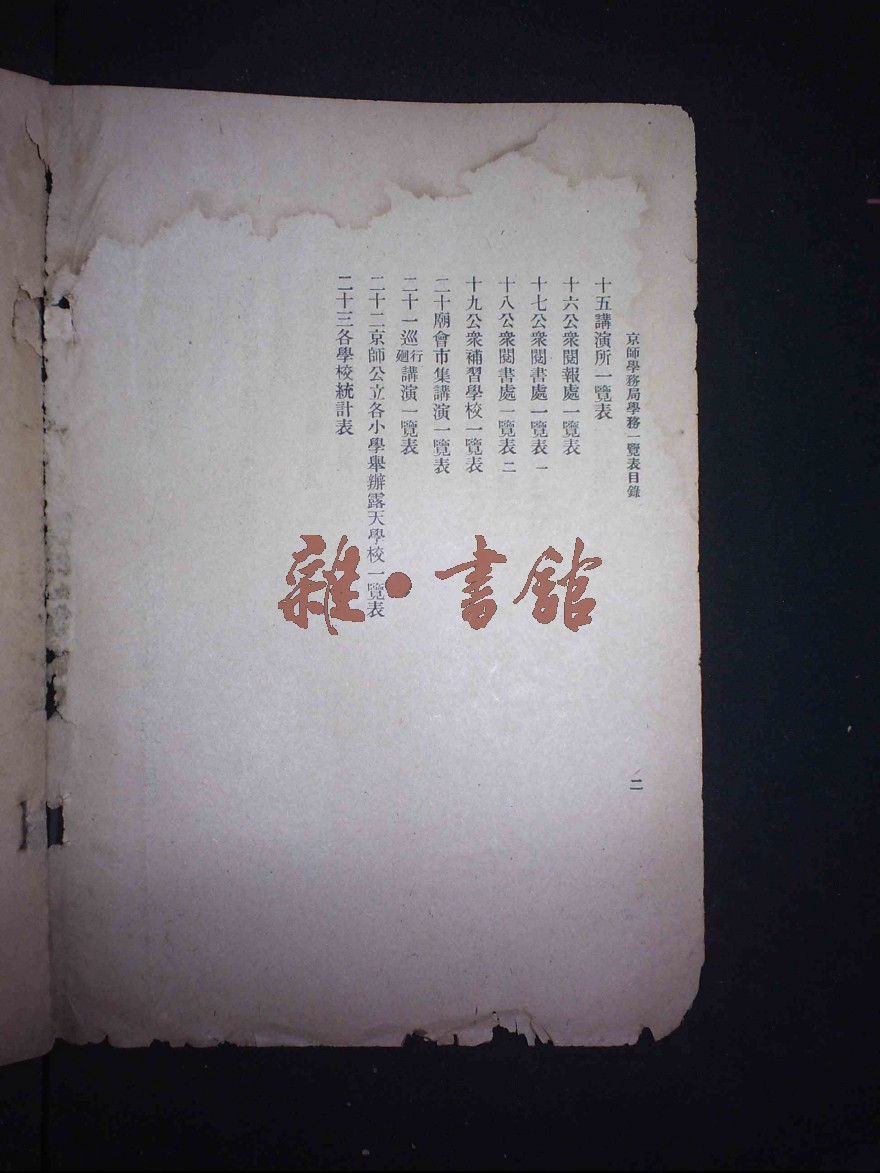 京師學務局學務一覽表目錄
十五講演所一覽表
十六公衆閱報處一覽表
十七公衆閱書處一覽表 一
十八公衆閱書處一覽表 二
十九公衆補習學校一覽表
二十廟會市集講演一覽表
二十一巡行廻講演一覽表
二十二京師公立各小學舉辦露天學校一覽表
二十三各學校統計表
二
雜·書館